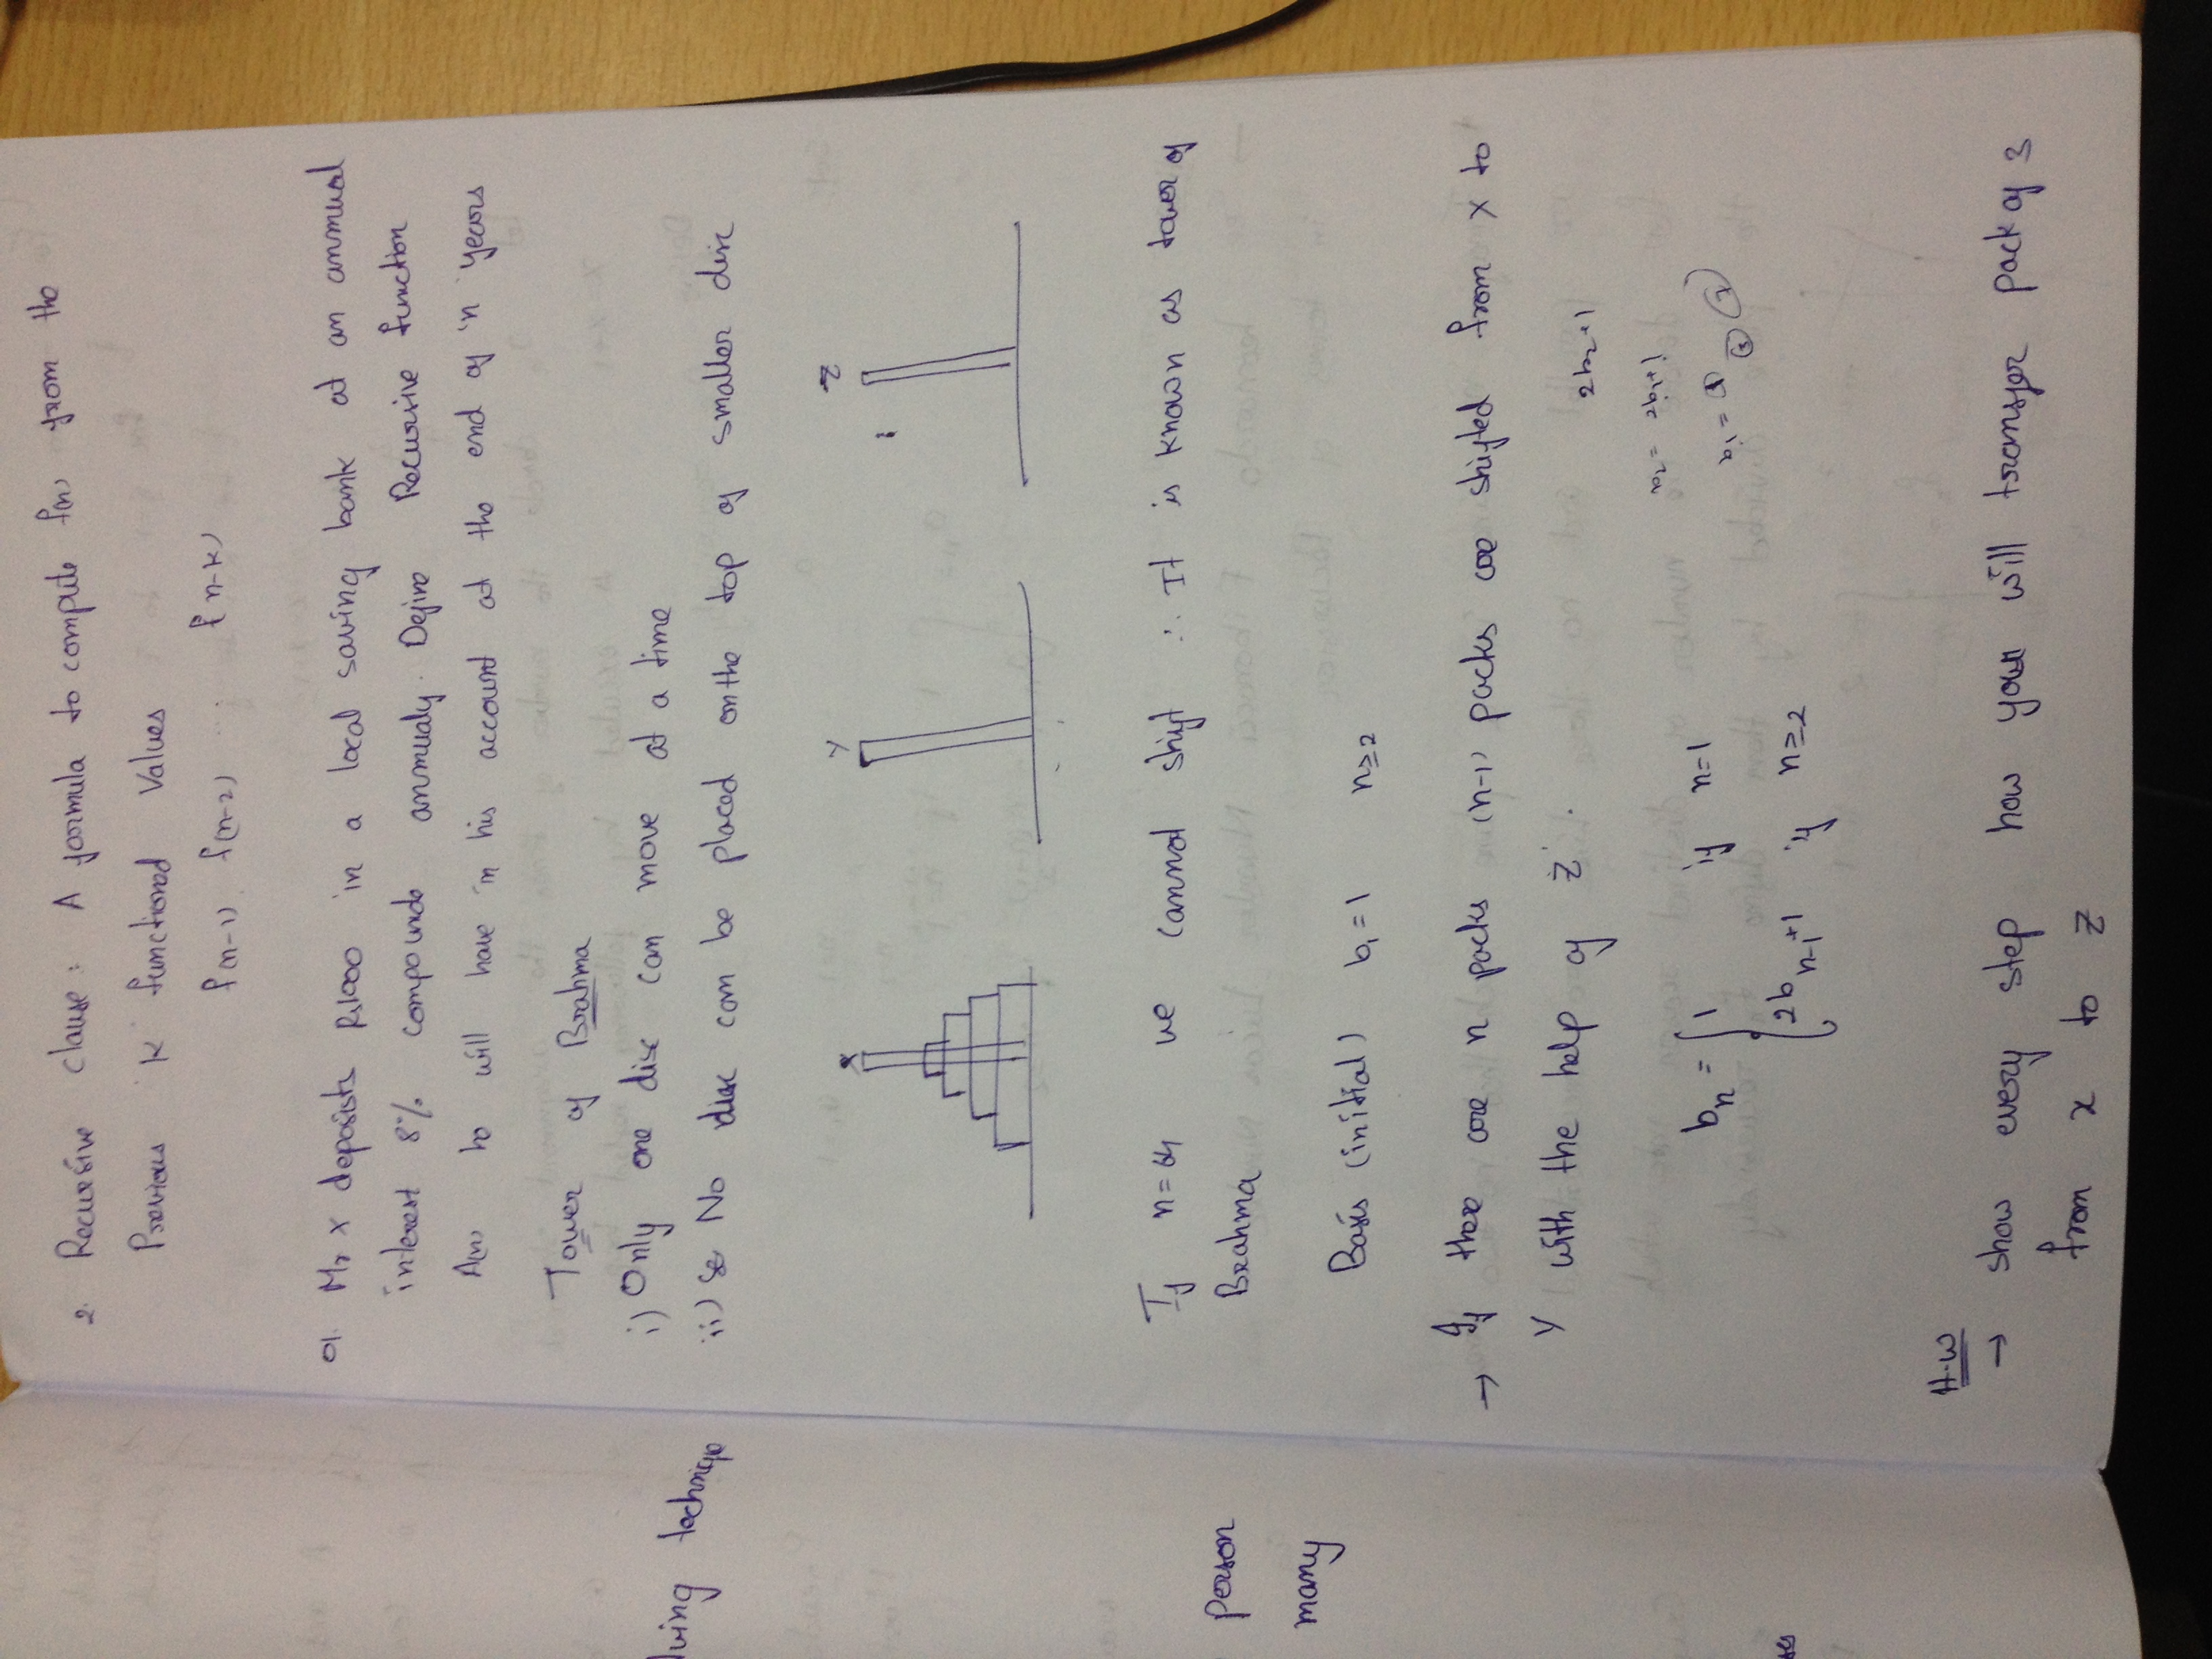 lving technique
person
many
2. Recursive clause : A formula to compute f(n) from the
Previous 'k' functional values
f(n-1) f(n-2) ... f(n-k)
Q. Mr X deposits Rs1000 in a local saving bank at an annual
interest 8% compounde annualy. Define Recursive function
A(n) he will have in his account at the end of 'n' years
Tower of Brahma
i) Only one disc can move at a time
ii) No disc can be placed on the top of smaller disc
X Y Z
If n=64 we cannot shift ∴ It is known as tower of
Brahma
Basis (initial) b1 = 1 n≥2
→ If there are n packs (n-1) packs are shifted from X to
Y with the help of Z.
2b2+1
bn = { 1 if n=1
2bn-1+1 if n≥2
= 2b1+1
b1 =
H.W
→ show every step how you will transfer pack of 3
from x to z